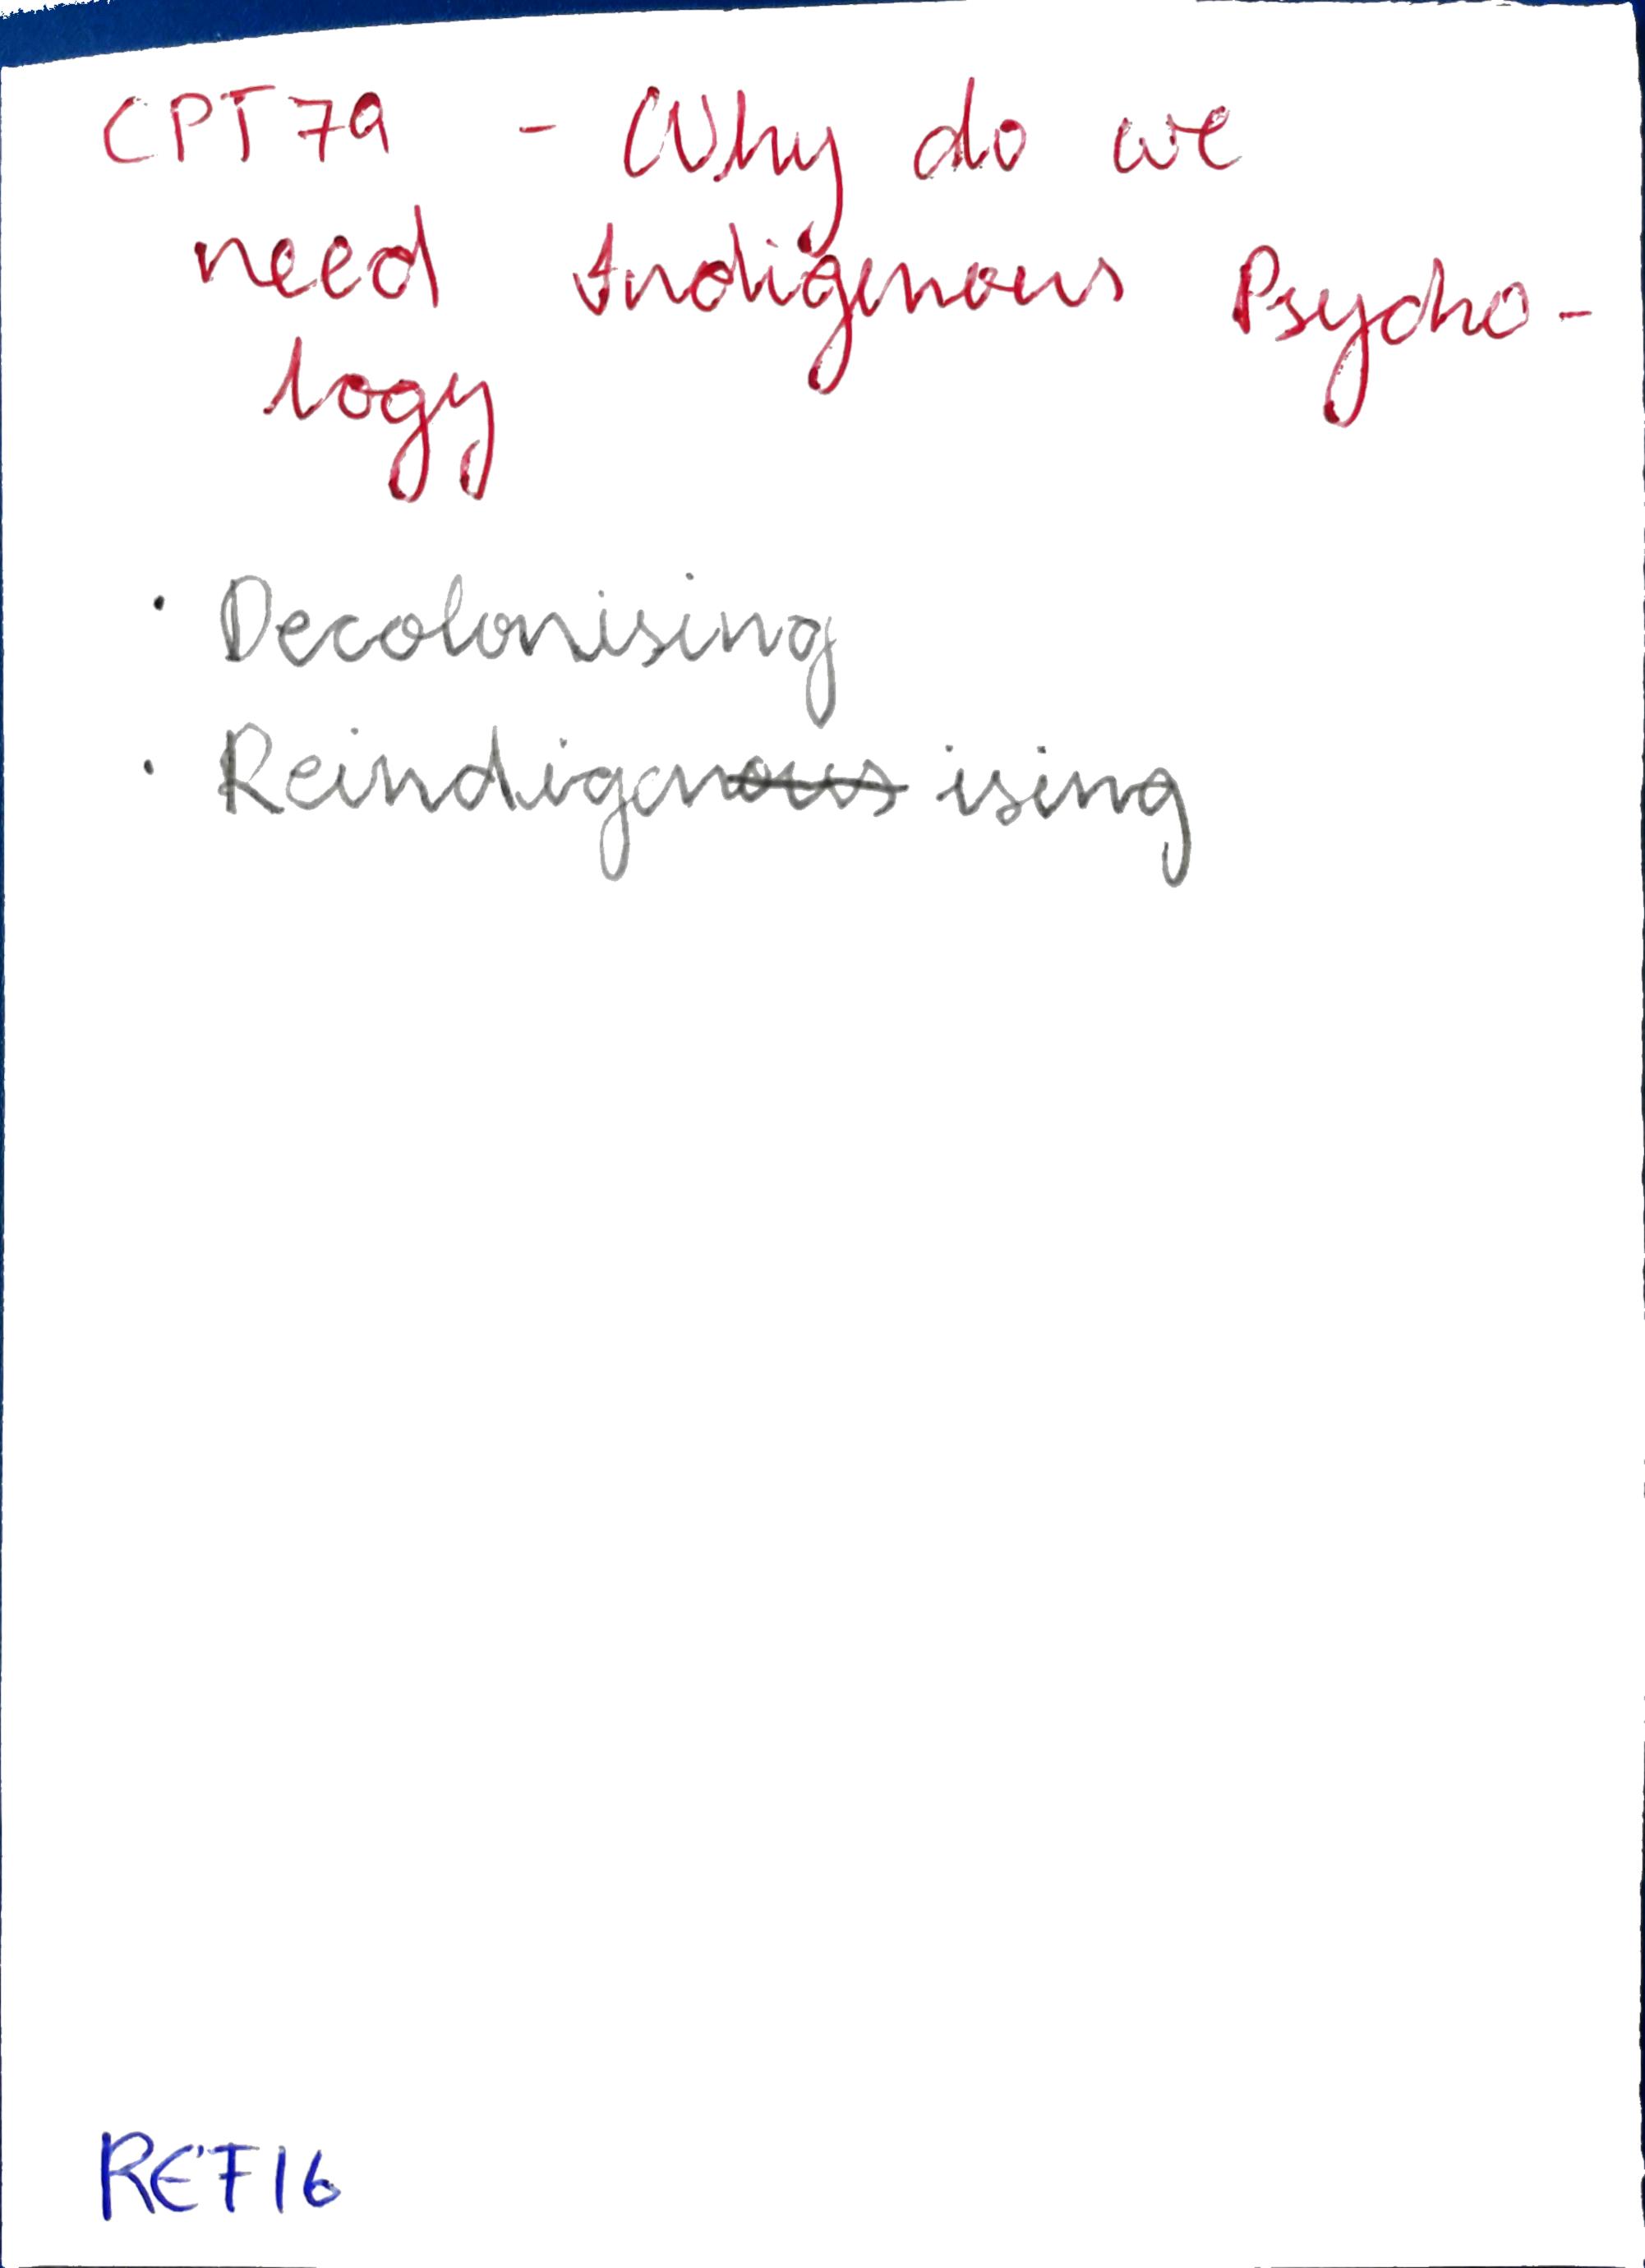 CPT 7a - Why do we
need Indigenous Psycho-
logy
· Decolonising
· Reindigenous ising
REF16